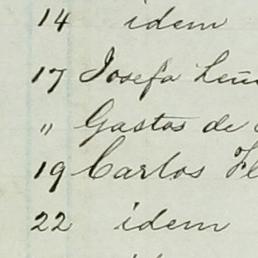 14 idem
17 Josefa
" Gastos de
19 Carlos
22 idem